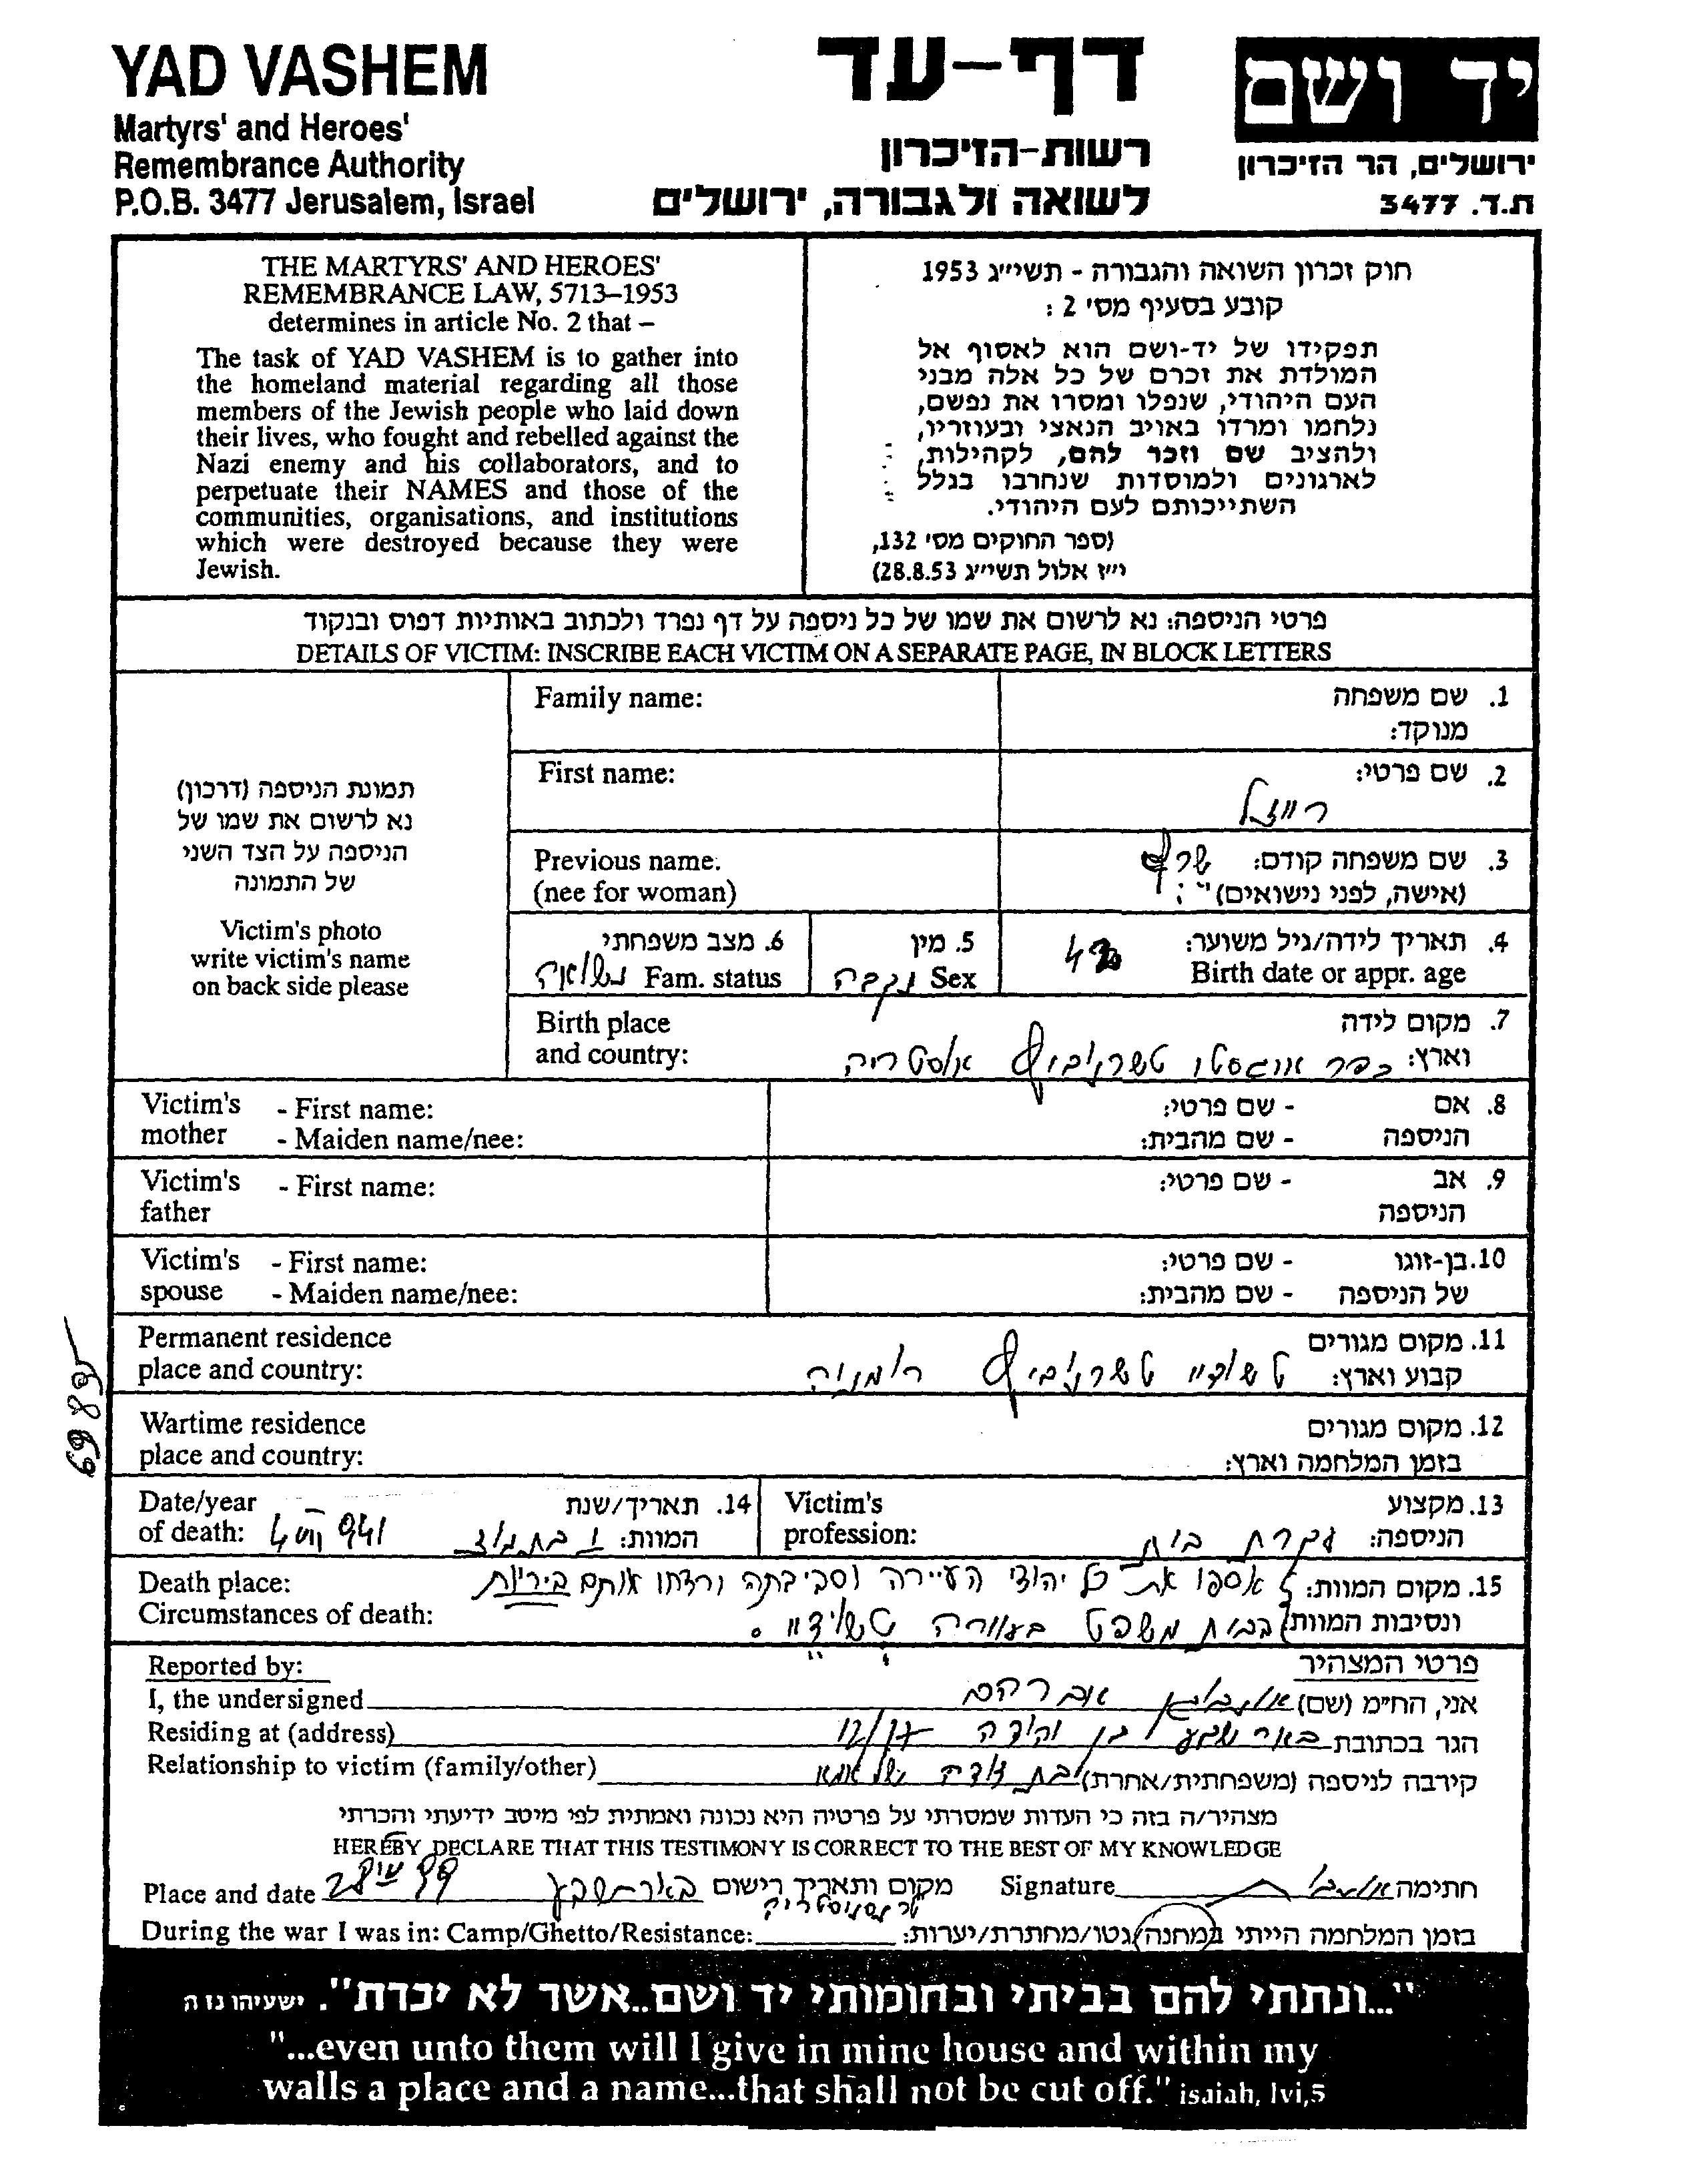 YAD VASHEM
Martyrs' and Heroes'
Remembrance Authority
P.O.B. 3477 Jerusalem, Israel
דף-עד
רשות-הזיכרון
לשואה ולגבורה, ירושלים
יד ושם
ירושלים, הר הזיכרון
ת.ד. 3477
THE MARTYRS' AND HEROES'
REMEMBRANCE LAW, 5713–1953
determines in article No. 2 that –
The task of YAD VASHEM is to gather into
the homeland material regarding all those
members of the Jewish people who laid down
their lives, who fought and rebelled against the
Nazi enemy and his collaborators, and to
perpetuate their NAMES and those of the
communities, organisations, and institutions
which were destroyed because they were
Jewish.
חוק זכרון השואה והגבורה - תשי״ג 1953
קובע בסעיף מס׳ 2 :
תפקידו של יד-ושם הוא לאסוף אל
המולדת את זכרם של כל אלה מבני
העם היהודי, שנפלו ומסרו את נפשם,
נלחמו ומרדו באויב הנאצי ובעוזריו,
ולהציב שם וזכר להם, לקהילות,
לארגונים ולמוסדות שנחרבו בגלל
השתייכותם לעם היהודי.
(ספר החוקים מס׳ 132,
י״ז אלול תשי״ג 28.8.53)
פרטי הניספה: נא לרשום את שמו של כל ניספה על דף נפרד ולכתוב באותיות דפוס ובנקוד
DETAILS OF VICTIM: INSCRIBE EACH VICTIM ON A SEPARATE PAGE, IN BLOCK LETTERS
תמונת הניספה (דרכון)
נא לרשום את שמו של
הניספה על הצד השני
של התמונה
Victim's photo
write victim's name
on back side please
Family name:
1. שם משפחה
מנוקד:
First name:
2. שם פרטי:
רייזל
Previous name.
(nee for woman)
3. שם משפחה קודם: שרף
(אישה, לפני נישואים)
4. תאריך לידה/גיל משוער:
Birth date or appr. age
5. מין
Sex נקבה
6. מצב משפחתי
Fam. status נשואה
Birth place
and country:
7. מקום לידה
וארץ: כפר אוגסטו טשרנוביץ אוסטריה
Victim's - First name:
mother - Maiden name/nee:
8. אם - שם פרטי:
הניספה - שם מהבית:
Victim's - First name:
father
9. אב - שם פרטי:
הניספה
Victim's - First name:
spouse - Maiden name/nee:
10. בן-זוגו - שם פרטי:
של הניספה - שם מהבית:
Permanent residence
place and country:
11. מקום מגורים
קבוע וארץ: טשודיי טשרנוביץ רומניה
Wartime residence
place and country:
12. מקום מגורים
בזמן המלחמה וארץ:
69895
Date/year
of death: 4 VII 941
14. תאריך/שנת
המוות: בתמוז
Victim's
profession:
13. מקצוע
הניספה: עקרת בית
Death place:
Circumstances of death:
15. מקום המוות: אספו את כל יהודי העיירה וסביבתה ורצחו אותם ביריות
ונסיבות המוות בבית משפט בעיירה טשודיי.
Reported by:
פרטי המצהיר
I, the undersigned אני, החי״מ (שם) אברהם
Residing at (address) הגר בכתובת באר שבע בן יהודה
Relationship to victim (family/other) קירבה לניספה (משפחתית/אחרת) בת דודה של אמא
מצהיר/ה בזה כי העדות שמסרתי על פרטיה היא נכונה ואמתית לפי מיטב ידיעתי והכרתי
HEREBY DECLARE THAT THIS TESTIMONY IS CORRECT TO THE BEST OF MY KNOWLEDGE
Place and date 99 28 מקום ותאריך רישום באר שבע Signature חתימה
טרנסניסטריה
During the war I was in: Camp/Ghetto/Resistance: בזמן המלחמה הייתי במחנה/גטו/מחתרת/יערות:
"...ונתתי להם בביתי ובחומותי יד ושם..אשר לא יכרת". ישעיהו נו ה
"...even unto them will I give in mine house and within my
walls a place and a name...that shall not be cut off." isaiah, lvi,5